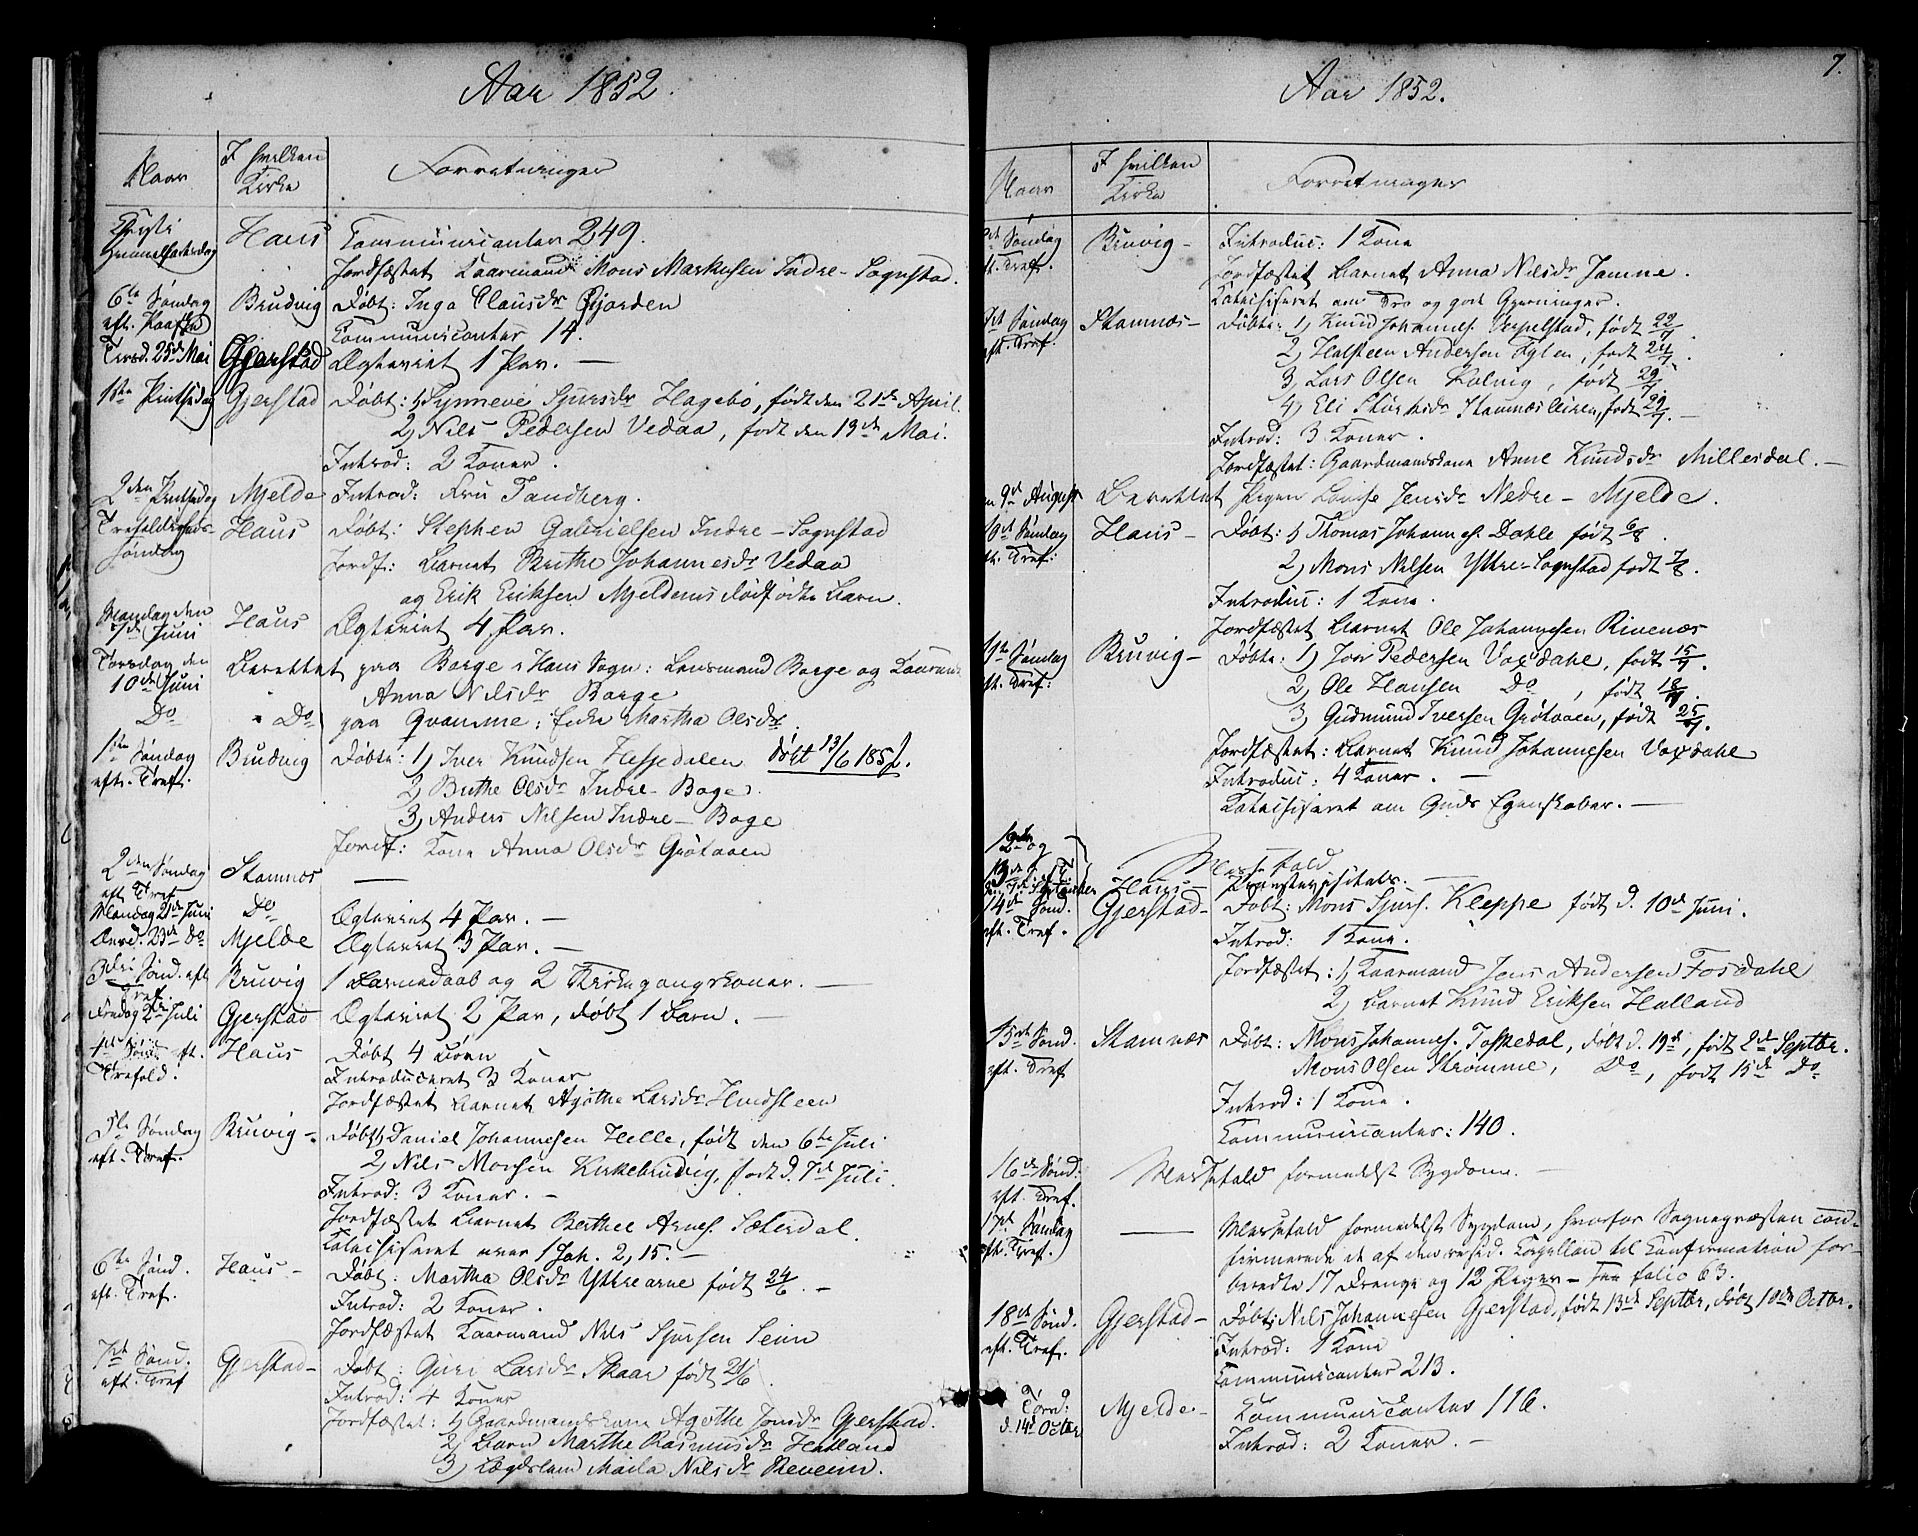 Aar 1852.
Naar
I hvilken Kirke
Forretninger
Christi Himmelfartsdag Haus Communicanter 249.
Jordfæstet Kaarmand Mons Markusen Indre-Sognstad.
6te Søndag eft. Paaske Brudvig Døbt: Inga Clausdr Gjorden
Communicanter 14.
Tirsd. 25de Mai Gjerstad Ægteviet 1 Par. —
1ste Pintsedag Gjerstad Døbt: 1) Synneve Sjursdr Hagebø, født den 21de April.
2) Nils Pedersen Vedaa, født den 13de Mai.
Introd: 2 Koner.
2den Pintsedag Mjelde Introd: Fru Tandberg.
Trefoldigheds-søndag Haus Døbt: Stephen Gabrielsen Indre-Sognstad
Jordf: Barnet Brithe Johannesdr Vedaa
og Erik Eriksen Mjeldems dødfødte Barn.
Mandag den 7de Juni Haus Ægteviet 4 Par.
Torsdag den 10de Juni Berettet paa Borge i Haus Sogn: Lensmand Borge og
Anna Nilsdr Borge
Do Do paa Qvamme: Enke Martha Olsdr.
1ste Søndag eft. Tref. Brudvig Døbte: 1) Iver Knudsen Hesjedalen Født 13/6 1851.
2) Brithe Olsdr Indre-Boge.
3) Anders Nilsen Indre-Boge
Jordf: Kone Anna Olsdr Grøtaaen
2den Søndag eft Tref Stamnæs —
Mandag 21de Juni Do Ægteviet 4 Par. —
Onsd. 23de Do Mjelde Ægteviet 3 Par. —
3die Sønd. eft Tref. Bruvig 1 Barnedaab og 2 Kirkegangskoner. —
Fredag 2de Juli Gjerstad Ægteviet 2 Par, døbt 1 Barn. —
4de Sønd. eft. Trefold. Haus Døbt 4 Børn
Introduceret 3 Koner
Jordfæstet Barnet Agathe Larsdr Hundsteen
5te Søndag eft. Tref. Bruvig -. Døbt 1) Daniel Johannesen Helle, født den 6te Juli
2) Nils Monsen Kirkebrudvig, født d. 7de Juli.
Introd: 3 Koner. —
Jordfæstet Barnet Berthee Arnes. Sæterdal.
Catechiseret over 1 Joh. 2, 15. —
6te Sønd. eft. Tref. Haus - Døbt: Martha Olsdr Yttrearne født 24/6. —
Introd: 2 Koner.
Jordfæstet Kaarmand Nils Sjursen Seim
7de Sønd. eft. Tref Gjerstad - Døbt: Guri Larsdr Skaar født 21/6.
Introd: 4 Koner
Jordfæstet: 1) Gaardmandskone Agathe Jonsdr Gjerstad.
2) Barn Marthe Rasmusdr Hatland
3) Lægdslem Maila Nilsdr Reveim.
7.
Aar 1852.
Naar
I hvilken Kirke
Forretninger
Søndag eft. Tref. Bruvig - Introduc: 1 Kone
Jordfæstet Barnet Anna Nilsdr Jamne.
Katechiseret om Tro og gode Gjerninger.
Søndag eft. Tref. Stamnæs - Døbte: 1) Knud Johannes. Vespelstad, født 22/7.
2) Halsteen Andersen Fylen, født 24/7.
3) Lars Olsen Kalvig, født 29/7.
4) Eli Stürksdr Stamnæsleiren, født 29/7. —
Introd: 3 Koner.
Jordfæstet: Gaardmandskone Anne Knudsdr Millesdal. —
9de August Berettet Pigen Louise Jensdr Nedre-Mjelde.
10de Søndag eft. Tref: Haus - Døbt: 1) Thomas Johannes. Dahle født 6/8.
2) Mons Nilsen Yttre-Sognstad født 7/8.
Introduc: 1 Kone.
Jordfæstet Barnet Ole Johannesen Rivenæs
11te Søndag eft. Tref: Bruvig - Døbte: 1) Joer Pedersen Voxdahl, født 15/7.
2) Ole Hansen Do, født 18/7.
3) Gudmund Iversen Grøtaaen, født 25/7.
Jordfæstet: Barnet Knud Johannesen Voxdahl
Introduc: 4 Koner. —
Katechiseret om Guds Egenskaber. —
12te og 13de S. e. T. Messefald
Haus - Provstevisitats. —
14de Sønd. eft. Tref. Gjerstad - Døbt: Mons Sjurs. Kleppe født d. 10de Juni.
Introd: 1 Kone.
Jordfæstet: 1) Kaarmand Jens Andersen Fosdahl
2) Barnet Knud Eriksen Hatland
15de Sønd. eft. Tref Stamnæs Døbt: Mons Johannes. Toskedal, døbt d. 19de, født 2de Septbr.
Mons Olsen Strømme, Do, født 15de Do
Introd: 1 Kone.
Communicanter: 140.
16de Sønd: eft. Tref. Messefald formedelst Sygdom. —
17de Søndag eft. Tref. — Messefald formedelst Sygdom, hvorfor Sognepræsten con-
firmerede de af den resid. Kapellan til Confirmation for-
beredte 17 Drenge og 12 Piger - see folio 63.
18de Sønd. eft. Tref. Gjerstad - Døbt: Nils Johannesen Gjerstad, født 13de Septbr, døbt 10de Octbr.
Introd: 1 Kone
Communicanter 213.
Torsd: d. 14de Octbr Mjelde - Communicanter 116.
Introd: 2 Koner. —